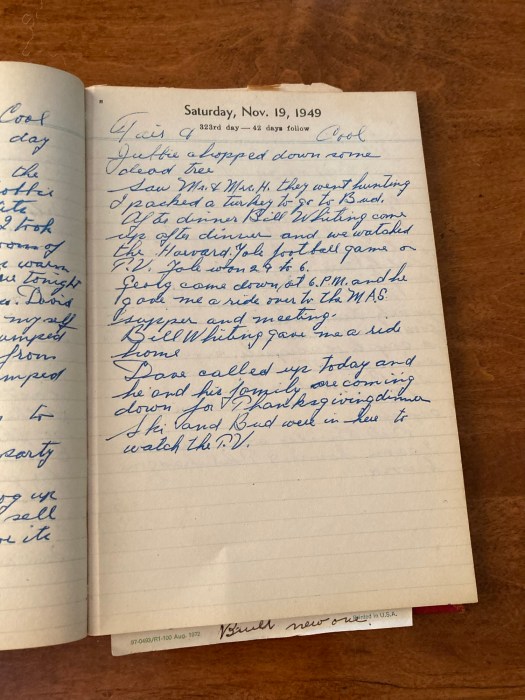 Cool
day
the
Bobbie
ate
I took
rooms of
warm
me tonight
David
myself
umped
from
mped
to
party
og up
sell
ve its
Saturday, Nov. 19, 1949
323rd day — 42 days follow
Fair & Cool
Jubbie chopped down some
dead tree
Saw Mr. & Mrs. H. they went hunting
I packed a turkey to go to Bud.
After dinner Bill Whiting come
up after dinner and we watched
the Harvard. Yale football game on
T.V. Yale won 29 to 6.
Georg came down, at 6. P.M. and he
gave me a ride over to the M.A.S.
supper and meeting.
Bill Whiting gave me a ride
home
Dave called up today and
he and his family are coming
down for Thanksgiving dinner
Ski and Bud were in here to
watch the T.V.
Printed in U.S.A.
Aug. 1972
Built new one.